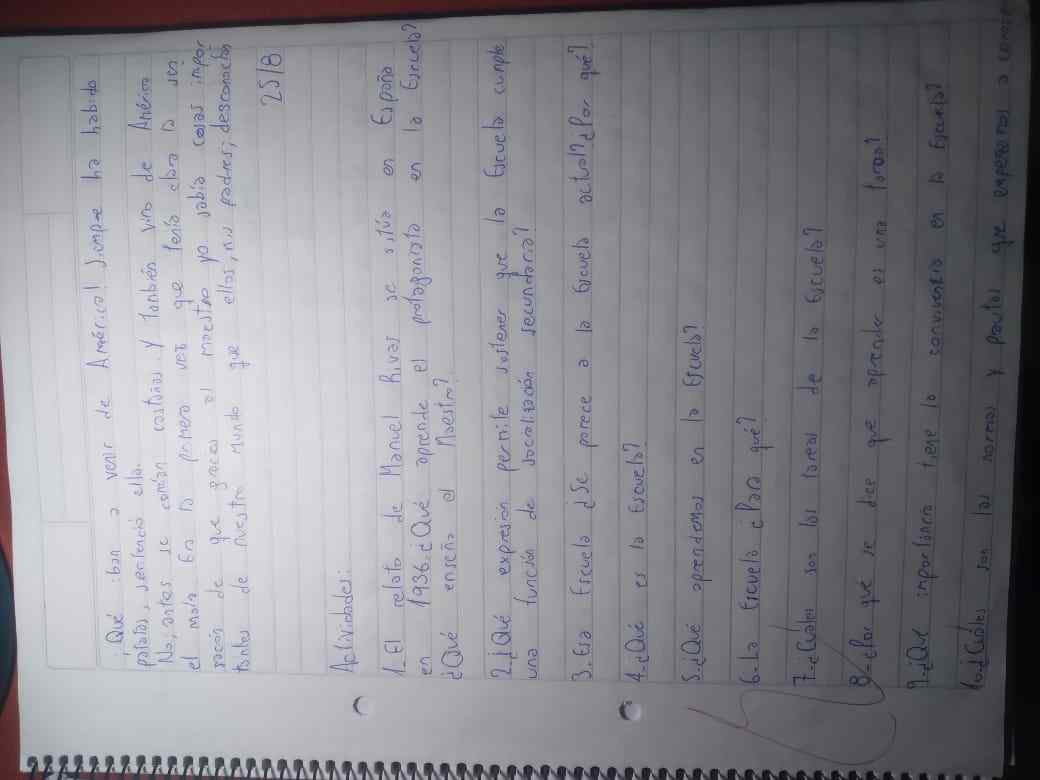 ¡Qué iban a venir de América! Siempre ha habido
patatas, sentenció ella.
No; antes se comían castañas. Y también vino de América
el maíz. Era la primera vez que tenía clara la sen
sación de que gracias al maestro yo sabía cosas impor
tantes de nuestro mundo que ellos, mis padres, desconocían
25/8
Actividades:
1_ El relato de Manuel Rivas se sitúa en España
en 1936. ¿Qué aprende el protagonista en la Escuela?
¿Qué enseña el Maestro?
2_¿Qué expresión permite sostener que la Escuela cumple
una función de socialización secundaria?
3_ Esa Escuela ¿Se parece a la Escuela actual? ¿Por qué?
4_¿Qué es la Escuela?
5_¿Qué aprendemos en la Escuela?
6_La Escuela ¿Para qué?
7_¿Cuáles son las tareas de la Escuela?
8_¿Por que se dice que aprender es una tarea?
9_¿Qué importancia tiene la convivencia en la Escuela?
10_¿Cuáles son las normas y pautas que empezamos a